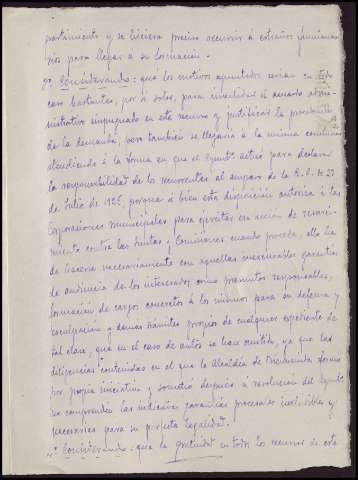 partimiento y se hiciera preciso recurrir a extraños funciona-
rios para llegar a su formación.
3º Considerando: que los motivos apuntados serían en todo
caso bastantes, por sí solos, para invalidar el acuerdo admi-
nistrativo impugnado en este recurso y justificar la procedencia
de la demanda, pero también se llegaría a la misma conclusión
atendiendo a la forma en que el Ayuntº actuó para declarar
la responsabilidad de los recurrentes al amparo de la R.O. de 27
de Julio de 1925, porque si bien esta disposición autoriza a las
Corporaciones municipales para ejercitar su acción de resarci-
miento contra las Juntas y Comisiones cuando proceda, ello ha
de hacerse necesariamente con aquellas inexcusables garantías
de audiencia de los interesados como presuntos responsables,
formación de cargos concretos a los mismos para su defensa y
exculpación y demás trámites propios de cualquier expediente de
tal clase, que en el caso de autos se hace omitido, ya que las
diligencias contenidas en el que la Alcaldía de formó
por propia iniciativa y sometió después a resolución del Ayuntº
no comprenden las indicadas garantías procesales ineludibles y
necesarias para su perfecta legalidad.
4º Considerando: que la gratuidad en todos los recursos de esta